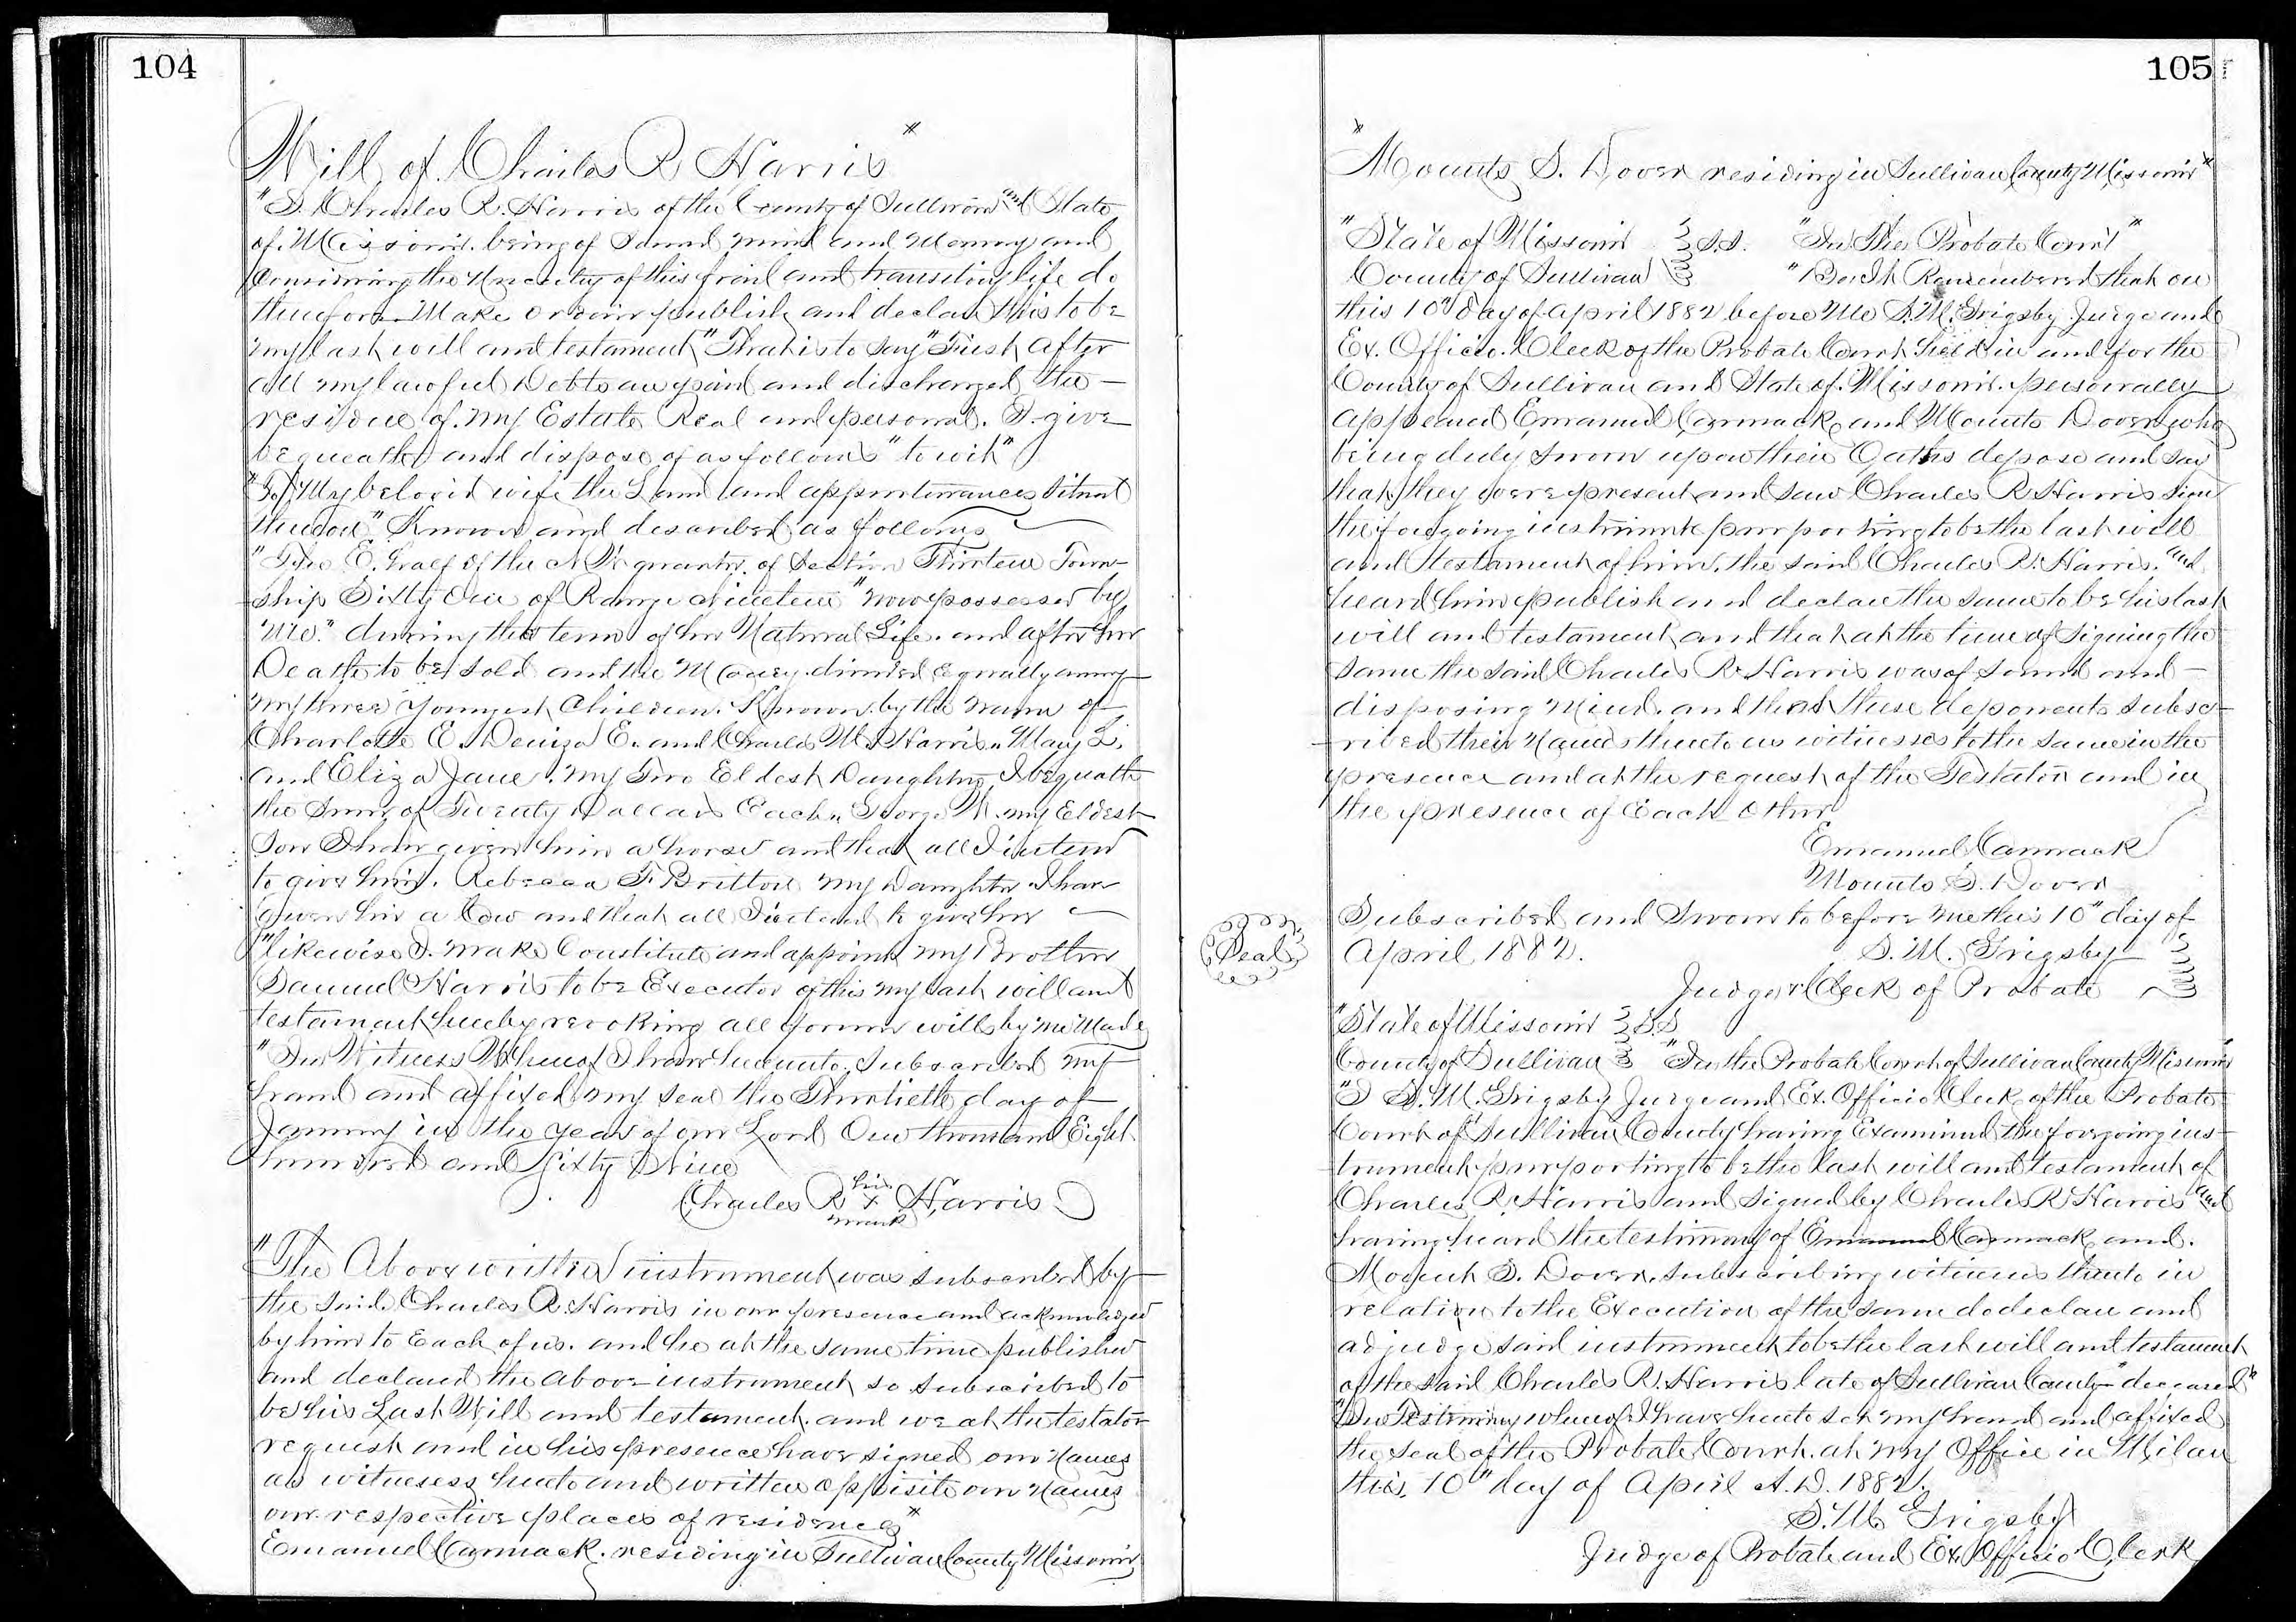 104
Will of Charles R Harris"
"I Charles R. Harris of the County of Sullivan and State
of Missouri being of Sound mind and Memory and
Considering the Uncertity of this frail and transitory life do
therefore Make ordain publish and declare this to be
my last will and testament, "That is to Say" First After
all my lawful Debts are paid and discharged the
residue of my Estate Real and personal. I give
bequeath and dispose of as follows "to wit"
"To, My beloved wife the Land and appurtenances Situat
thereon" Known and described as follows
"The E. half of the N W quarter of Section Thirteen Town-
ship Sixty One of Range Nineteen" now possessed by
"me." during the term of her Natural Life. and after her
Death to be sold and the Money divided Equally among
my three Youngest Children. Known by the name of
Charlotte E. Deniza E. and Charles M. Harris. Mary L.
and Eliza Jane, my Two Eldest Daughters, I bequeath
the Sum of Twenty Dollars Each. George W. my Eldest
Son I have given him a horse and that all I intend
to give him. Rebecca F Britton my Daughter I have
given her a Cow and that all I intend to give her
"likewise I make Constitute and appoint my Brother
Samuel Harris to be Executor of this my last will and
testament hereby revoking all former wills by me Made
"In Witness Whereof I have hereunto Subscribed my
hand and affixed my seal the Thirtieth day of
January in the year of our Lord One thousand Eight
hundred and Sixty Nine
Charles R his x mark Harris
"The Above written instrument was Subscribed by
the Said Charles R. Harris in our presence and acknowledged
by him to Each of us. and he at the same time published
and declared the above instrument so subscribed to
be his Last Will and testament. and we at the testator
request and in his presence have signed our Names
as witnesses hereto and written oppisite our Names
our respective places of residences"
Emanuel Cormack. residing in Sullivan County Missouri
105
"Mounts S. Dover residing in Sullivan County Missouri"
"State of Missouri S.S. "In the Probate Court"
County of Sullivan "Be It Remembered that on
this 10" day of April 1882 before Me S. M. Grigsby Judge and
Ex. Officio. Clerk of the Probate Court held in and for the
County of Sullivan and State of Missouri. personally
appeared Emanuel Cormack and Mounts Dover who
being duly sworn upon their Oaths depose and say
that they were present and saw Charles R Harris sign
the foregoing instrument purporting to be the last will
and testament of him, the said Charles R. Harris. and
heard him publish and declare the same to be his last
will and testament, and that at the time of Signing the
Same the said Charles R. Harris was of Sound and
disposing Mind. and that these deponents subsc-
ribed their Names thereto as witnesses to the same in the
presence and at the request of the Testator and in
the presence of Each other
Emanuel Cormack
Mounts S. Dover
Subscribed and Sworn to before me this 10" day of
Seal
April 1882. S. M. Grigsby
Judge & Clerk of Probate
"State of Missouri S.S
County of Sullivan "In the Probate Court of Sullivan County Missouri
"I S. M. Grigsby Judge and Ex. Officio Clerk of the Probate
Court of Sullivan County having Examined the foregoing ins-
trument purporting to be the last will and testament of
Charles R. Harris and signed by Charles R Harris and
having heard the testimony of Emanuel Cormack and.
Mount S. Dover. subscribing witnesses thereto in
relation to the Execution of the same do declare and
adjudge said instrument to be the last will and testament
of the said Charles R. Harris late of Sullivan County "deceased"
"In Testimony whereof I have hereto set my hand and affixed
the seal of the Probate Court. at my Office in Milan
this, 10" day of April A.D. 1882.
S. M. Grigsby
Judge of Probate and Ex Officio Clerk